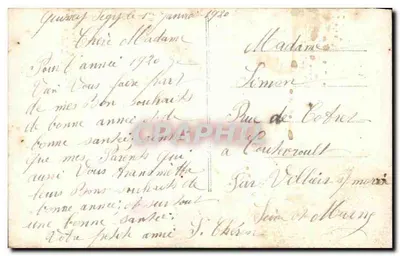 le 1er Janvier 1920
Chère Madame
Pour l'année 1920 je
Vais Vous faire part
de mes bon souhaits
de bonne année et de
bonne santé
que mes Parents qui
aussi Vous transmette
leurs bons souhaits de
bonne année et surtout
une bonne santée
Votre petite amie
Madame
Simon
Rue de
a
Par Villiers s/ morin
Seine et Marne